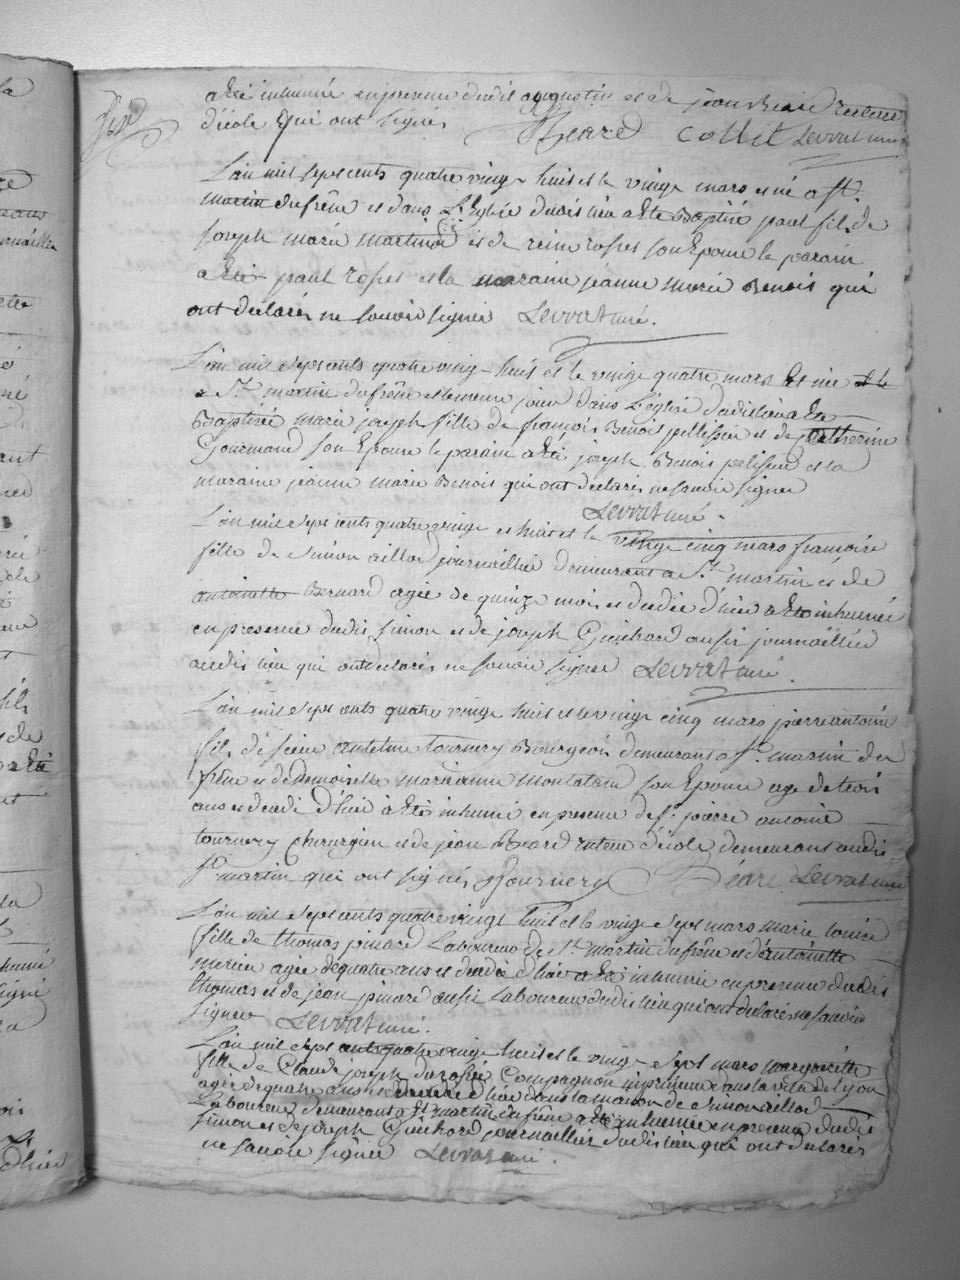 a été inhumé en presence dudit augustin et de jean Beard recteur
d'école qui ont signer Beard Collet Levrat curé
L'an mil sept cents quatre vingt huit et le vingt mars est né a St.
martin dufrêne et dans L'Eglise dudit lieu a été Baptisé paul fils de
joseph marie martinod et de reine rosset son Epouse le parain
a été paul rosset et la maraine jeanne marie Benoit qui
ont declarés ne savoir signer Levrat curé.
L'an mil sept cents quatre vingt huit et le vingt quatre mars Est née
a St. martin dufrêne et le meme jour dans L'église dudit lieu a été
Baptisée marie joseph fille de françois Benoit pellissier et de Catherine
Gourmand son Epouse le parain a été joseph Benoit pelissier et la
maraine jeanne marie Benoit qui ont declarés ne savoir signer
Levrat curé.
L'an mil sept cents quatre vingt et huit et le vingt cinq mars françoise
fille de Simon aillod journaillier demeurant a St. martin et de
antoinette Bernard agée de quinze mois et decedée d'hier a été inhumée
en presence dudit Simon et de joseph Guichard aussi journaillier
audit lieu qui ont declarés ne savoir signer Levrat curé.
L'an mil sept cents quatre vingt huit et le vingt cinq mars pierre antoine
fils de sieur anthelme tournery Bourgeois demeurant a St. martin du
frêne et de demoiselle marianne montaland son Epouse agé de trois
ans et decedé d'hier a été inhumé en presence de Sr. pierre antoine
tournery chirurgien et de jean Beard recteur d'école demeurants audit
St. martin qui ont signés Tournery Béard Levrat curé
L'an mil sept cents quatre vingt huit et le vingt sept mars marie louise
fille de thomas joinard Laboureur de St. martin du frêne et d'antoinette
mercier agée de quatre ans et decedée d'hier a été inhumée en presence dudit
thomas et de jean joinard aussi Laboureur dudit lieu qui ont declarés ne savoir
signer Levrat curé.
L'an mil sept cents quatre vingt huit et le vingt sept mars marguerite
fille de Claude joseph durosier Compagnon imprimeur dans la ville de Lyon
agée de quatre ans et decedée d'hier dans la maison de Simon aillod
Laboureur demeurant a St martin du frêne a été inhumée en presence dudit
Simon et de joseph Guichard journaillier dudit lieu qui ont declarés
ne savoir signer Levrat curé.